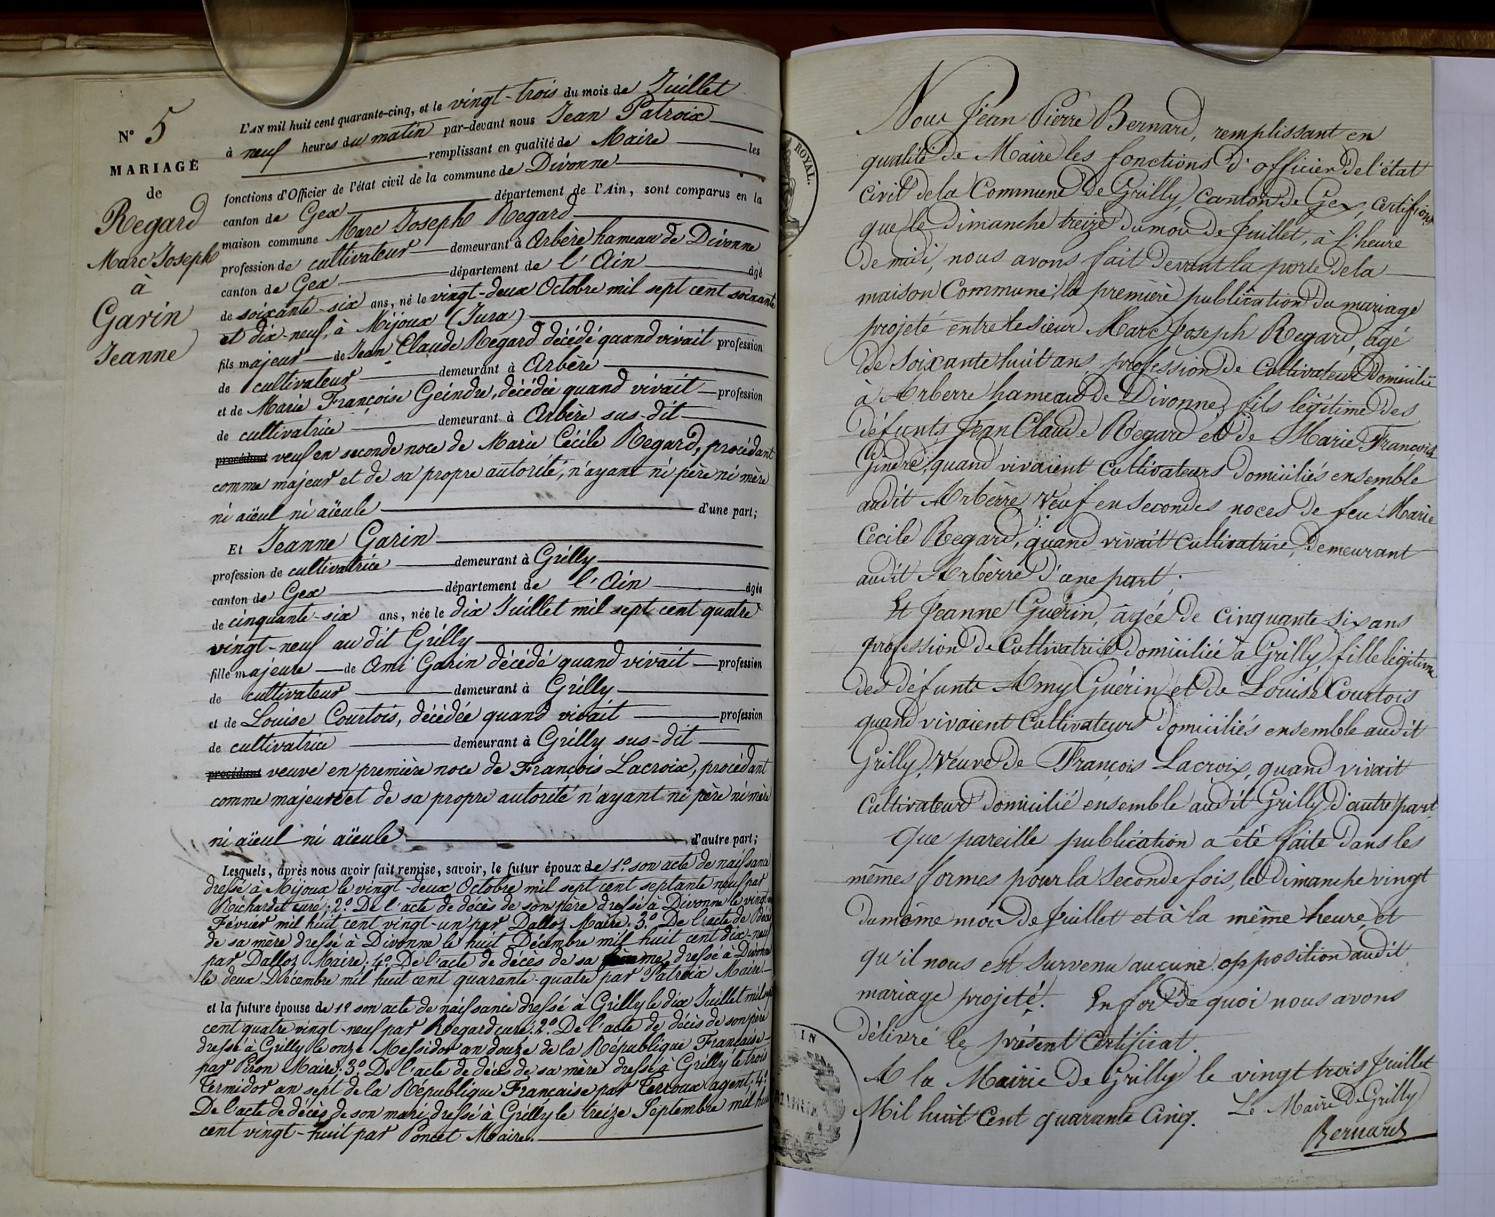 N° 5
MARIAGE
de
Regard
Marc Joseph
à
Garin
Jeanne
L'AN mil huit cent quarante-cinq, et le vingt-trois du mois de Juillet
à neuf heures du matin par-devant nous Jean Patroix
remplissant en qualité de Maire les
fonctions d'Officier de l'état civil de la commune de Divonne
canton de Gex département de l'Ain, sont comparus en la
maison commune Marc Joseph Regard
profession de cultivateur demeurant à Arbère hameau de Divonne
canton de Gex département de l'Ain âgé
de soixante-six ans, né le vingt-deux Octobre mil sept cent soixante
et dix-neuf, à Mijoux (Jura)
fils majeur de Jean Claude Regard décédé quand vivait profession
de cultivateur demeurant à Arbère
et de Marie Françoise Geindre, décédée quand vivait profession
de cultivatrice demeurant à Arbère sus-dit
procédant veuf en seconde noce de Marie Cécile Regard, procédant
comme majeur et de sa propre autorité, n'ayant ni père ni mère
ni aïeul ni aïeule d'une part;
Et Jeanne Garin
profession de cultivatrice demeurant à Grilly
canton de Gex département de l'Ain âgée
de cinquante-six ans, née le dix Juillet mil sept cent quatre
vingt-neuf au dit Grilly
fille majeure de Ami Garin décédé quand vivait profession
de cultivateur demeurant à Grilly
et de Louise Courtois, décédée quand vivait profession
de cultivatrice demeurant à Grilly sus-dit
procédant veuve en première noce de François Lacroix, procédant
comme majeure et de sa propre autorité n'ayant ni père ni mère
ni aïeul ni aïeule d'autre part;
Lesquels, après nous avoir fait remise, savoir, le futur époux de 1° son acte de naissance
dressé à Mijoux le vingt-deux Octobre mil sept cent septante neuf par
Richardet curé; 2° De l'acte de décès de son père dressé à Divonne le vingt
Février mil huit cent vingt-un par Dalloz Maire; 3° De l'acte de décès
de sa mère dressé à Divonne le huit Décembre mil huit cent dix-neuf
par Dalloz Maire; 4° De l'acte de décès de sa femme, dressé à Divonne
le deux Décembre mil huit cent quarante-quatre par Patroix Maire
et la future épouse de 1° son acte de naissance dressé à Grilly le dix Juillet mil sept
cent quatre vingt-neuf par Regard curé; 2° De l'acte de décès de son père
dressé à Grilly le onze Messidor an douze de la République Française
par Maire; 3° De l'acte de décès de sa mère dressé à Grilly le trois
Termidor an sept de la République Française par Terroux agent; 4°
De l'acte de décès de son mari, dressé à Grilly le treize Septembre mil huit
cent vingt-huit par Poncet Maire.
ROYAL.
Nous Jean Pierre Bernard, remplissant en
qualité de Maire les fonctions d'officier de l'état
civil de la Commune de Grilly canton de Gex, certifions
que le dimanche treize du mois de Juillet, à l'heure
de midi, nous avons fait devant la porte de la
maison Commune, la première publication du mariage
projeté entre le sieur Marc Joseph Regard, agé
de soixante huit ans, profession de Cultivateur domicilié
à Arberre hameau de Divonne, fils légitime des
défunts Jean Claude Regard et de Marie Françoise
Gindre, quand vivaient Cultivateurs domiciliés ensemble
audit Arbèrre, Veuf en secondes noces de feu Marie
Cécile Regard, quand vivait Cultivatrice, demeurant
audit Arbèrre d'une part.
Et Jeanne Guérin, agée de cinquante six ans
profession de Cultivatrice domiciliée à Grilly, fille légitime
des défunts Amy Guérin et de Louise Courtois
quand vivaient Cultivateurs domiciliés ensemble audit
Grilly, Veuve de François Lacroix, quand vivait
Cultivateur domicilié ensemble audit Grilly d'autre part
Que pareille publication a été faite dans les
mêmes formes pour la seconde fois, le dimanche vingt
du même mois de Juillet et à la même heure, et
qu'il nous est survenu aucune opposition audit
mariage projeté. En foi de quoi nous avons
délivré le présent certificat.
A la Mairie de Grilly le vingt trois Juillet
Mil huit Cent quarante Cinq.
Le Maire de Grilly
Bernard